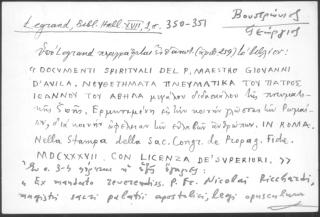 Legrand, Bibl. Hell. XVII, 1, σ. 350-351
Βουστρώνιος
Γεώργιος
Legrand
"DOCUMENTI SPIRITUALI DEL P. MAESTRO GIOVANNI
D'AVILA. ΝΟΥΘΕΤΗΜΑΤΑ ΠΝΕΥΜΑΤΙΚΑ ΤΟΥ ΠΑΤΡΟΣ
ΙΩΑΝΝΟΥ ΤΟΥ ΑΒΗΛΑ μεγάλου διδασκάλου της πνευματι-
κής ζωής. Ερμηνευμένη εις την κοινήν γλώσσαν των Ρωμαί-
ων, διά κοινήν ωφέλειαν των ευλαβών ανθρώπων. IN ROMA,
Nella Stampa della Sac. Congr. de Propag. Fide.
MDCXXXVII. CON LICENZA DE' SUPERIORI. "
Στη σ. 3-4
" Ex mandato reverendiss. P. Fr. Nicolai Riccardi,
magistri sacri palatii apostolici, legi opusculum